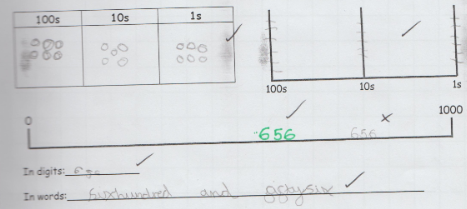 100s 10s 1s
100s 10s 1s
0 1000
656 656
In digits:
In words: sixhundred and